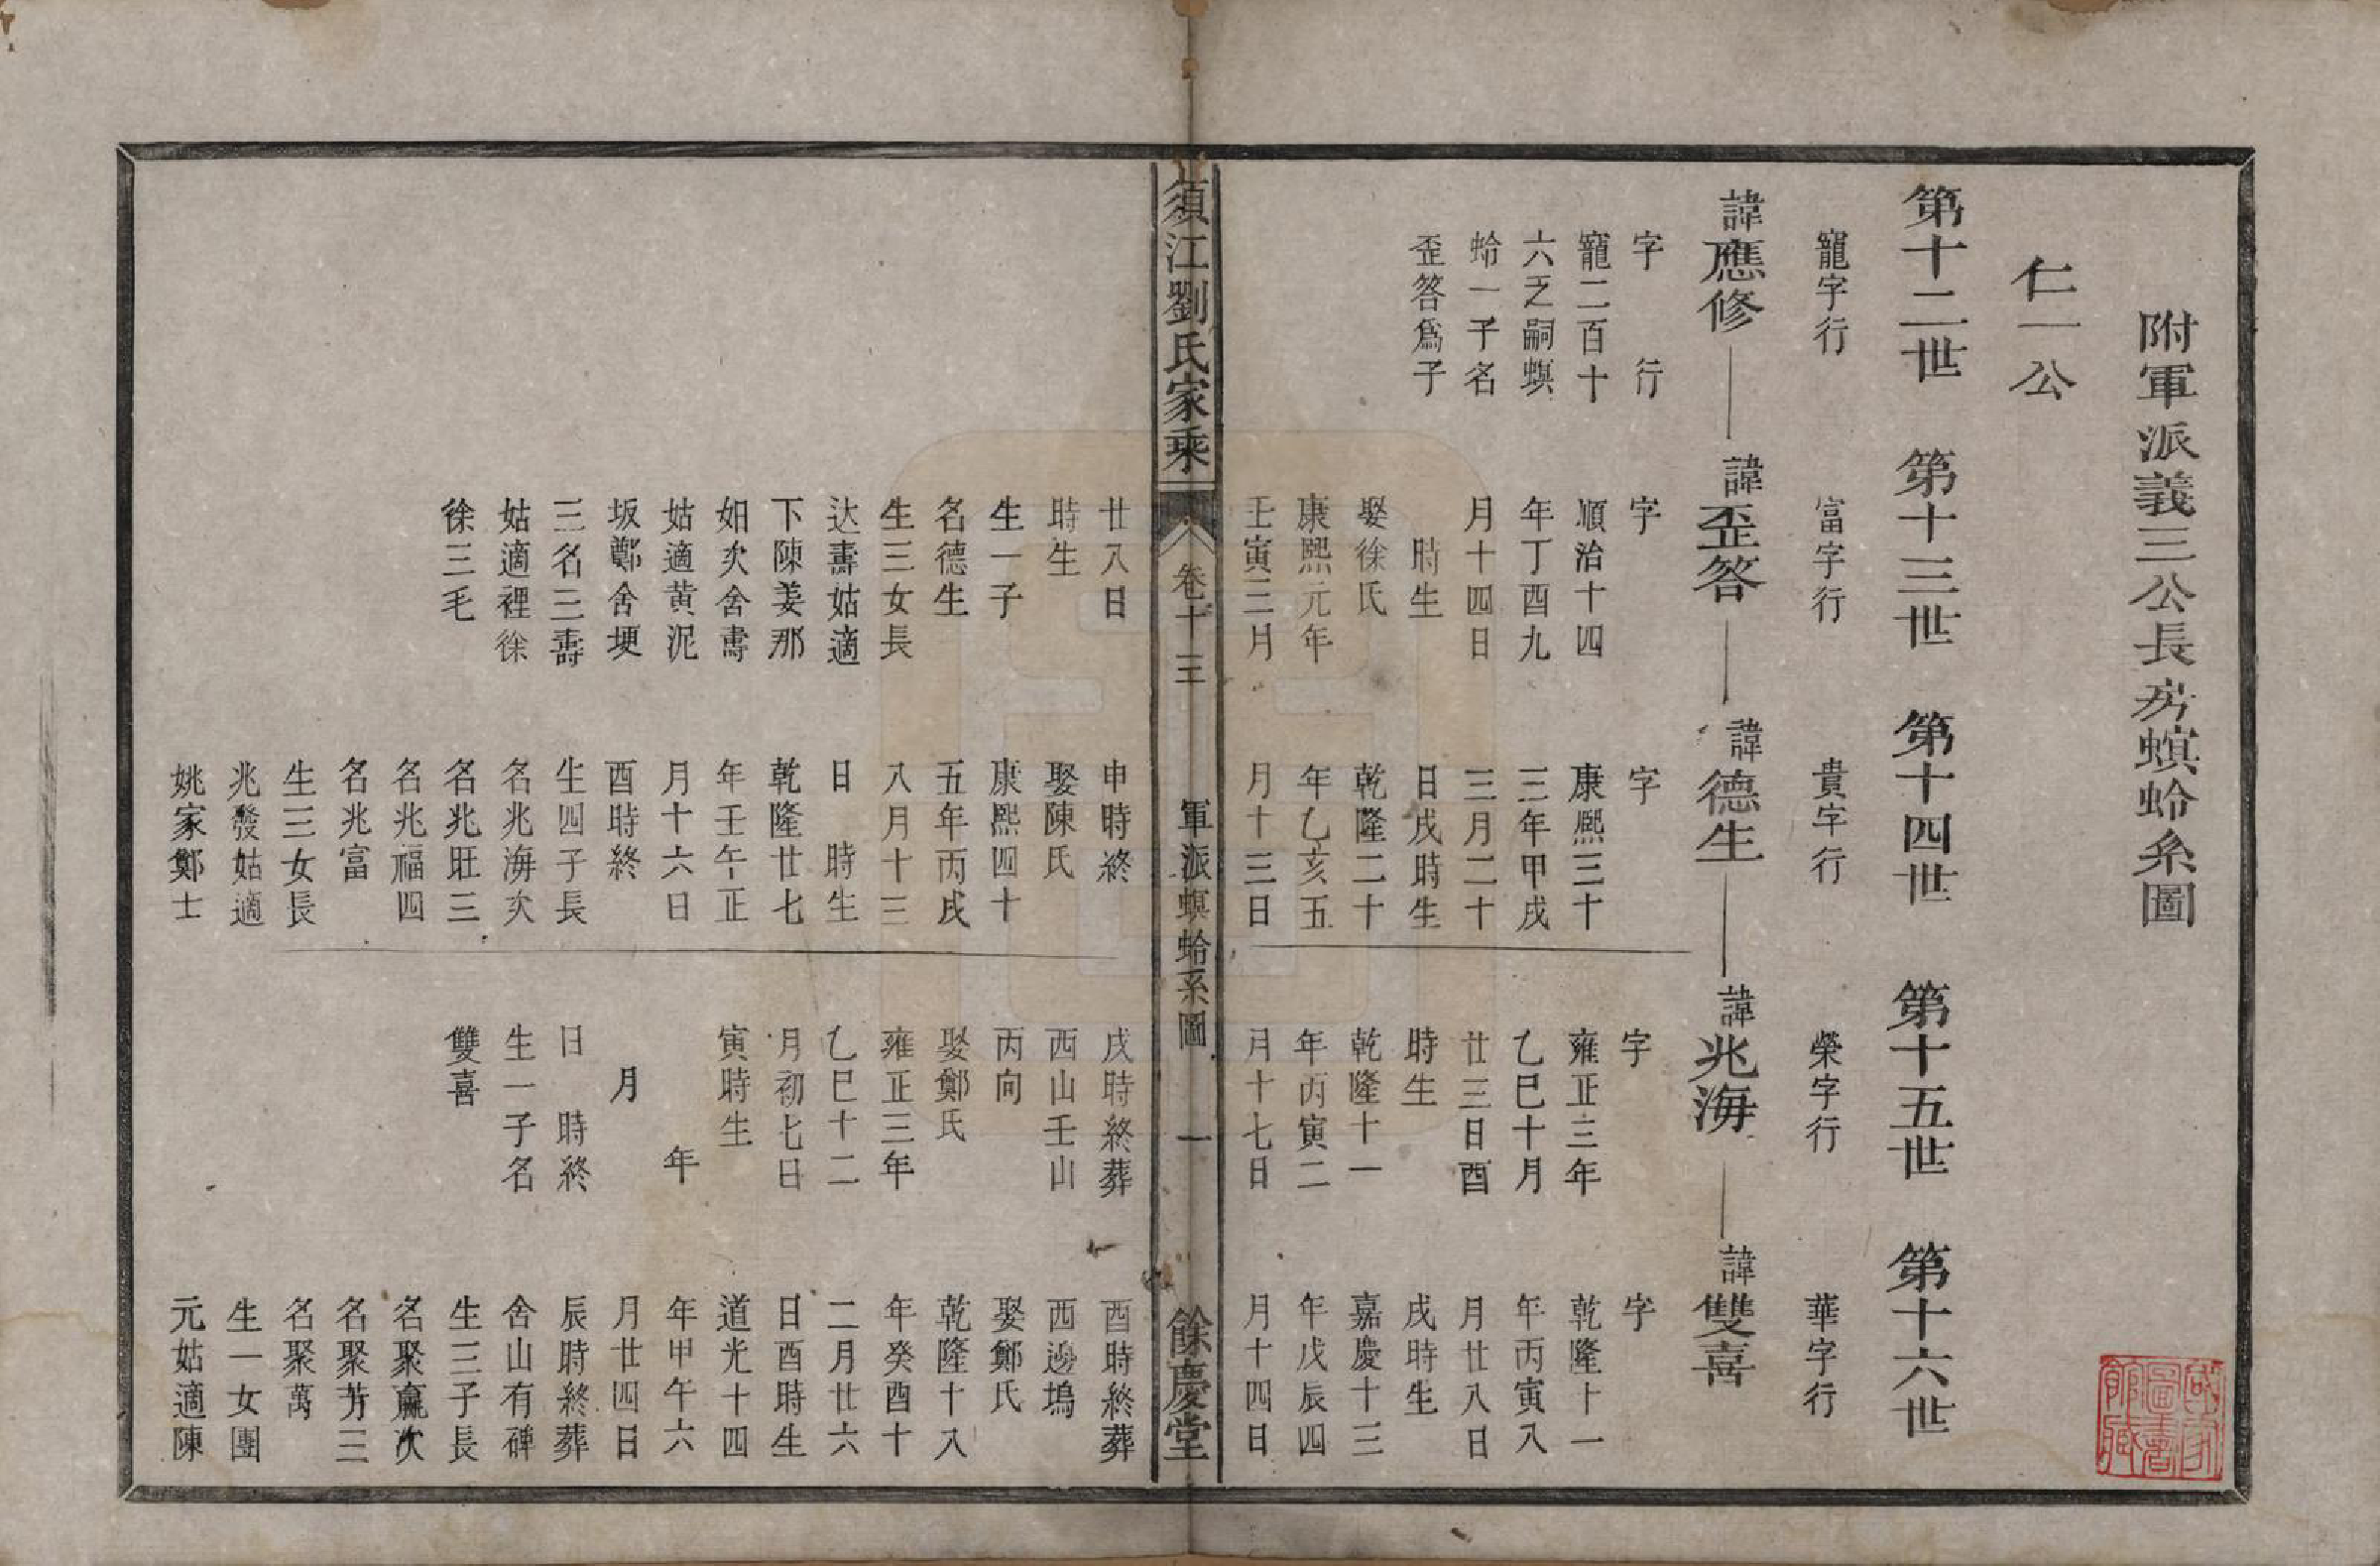 附軍派義三公長房螟蛉系圖
仁一公
第十二世 第十三世 第十四世 第十五世 第十六世
寵字行 富字行 貴字行 榮字行 華字行
諱應修 諱歪答 諱德生 諱兆海 諱雙喜
字 行
寵二百十
六乏嗣螟
蛉一子名
歪答爲子
字
順治十四
年丁酉九
月十四日
時生
娶徐氏
康熙元年
壬寅三月
廿八日
時生
生一子
名德生
生三女長
达壽姑適
下陳姜那
如次舍壽
姑適黄泥
坂鄭舍埂
三名三壽
姑適裡徐
徐三毛
字
康熙三十
三年甲戌
三月二十
日戌時生
乾隆二十
年乙亥五
月十三日
申時終
娶陳氏
康熙四十
五年丙戌
八月十三
日 時生
乾隆廿七
年壬午正
月十六日
酉時終
生四子長
名兆海次
名兆旺三
名兆福四
名兆富
生三女長
兆發姑適
姚家鄭士
字
雍正三年
乙巳十月
廿三日酉
時生
乾隆十一
年丙寅二
月十七日
戌時終葬
西山壬山
丙向
娶鄭氏
雍正三年
乙巳十二
月初七日
寅時生
年
月
日 時終
生一子名
雙喜
字
乾隆十一
年丙寅八
月廿八日
戌時生
嘉慶十三
年戊辰四
月十四日
酉時終葬
西邊塢
娶鄭氏
乾隆十八
年癸酉十
二月廿六
日酉時生
道光十四
年甲午六
月廿四日
辰時終葬
舍山有碑
生三子長
名聚贏次
名聚芳三
名聚萬
生一女團
元姑適陳
須江劉氏家乘
卷十三
軍派螟蛉系圖
一
餘慶堂